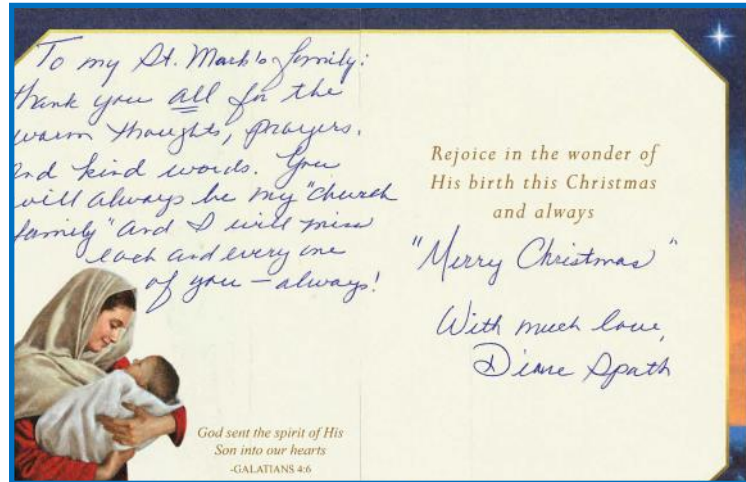 To my St. Mark's family:
Thank you all for the
warm thoughts, prayers,
and kind words. You
will always be my "church
family" and I will miss
each and every one
of you – always!
God sent the spirit of His
Son into our hearts
-GALATIANS 4:6
Rejoice in the wonder of
His birth this Christmas
and always
"Merry Christmas"
With much love,
Diane Spath